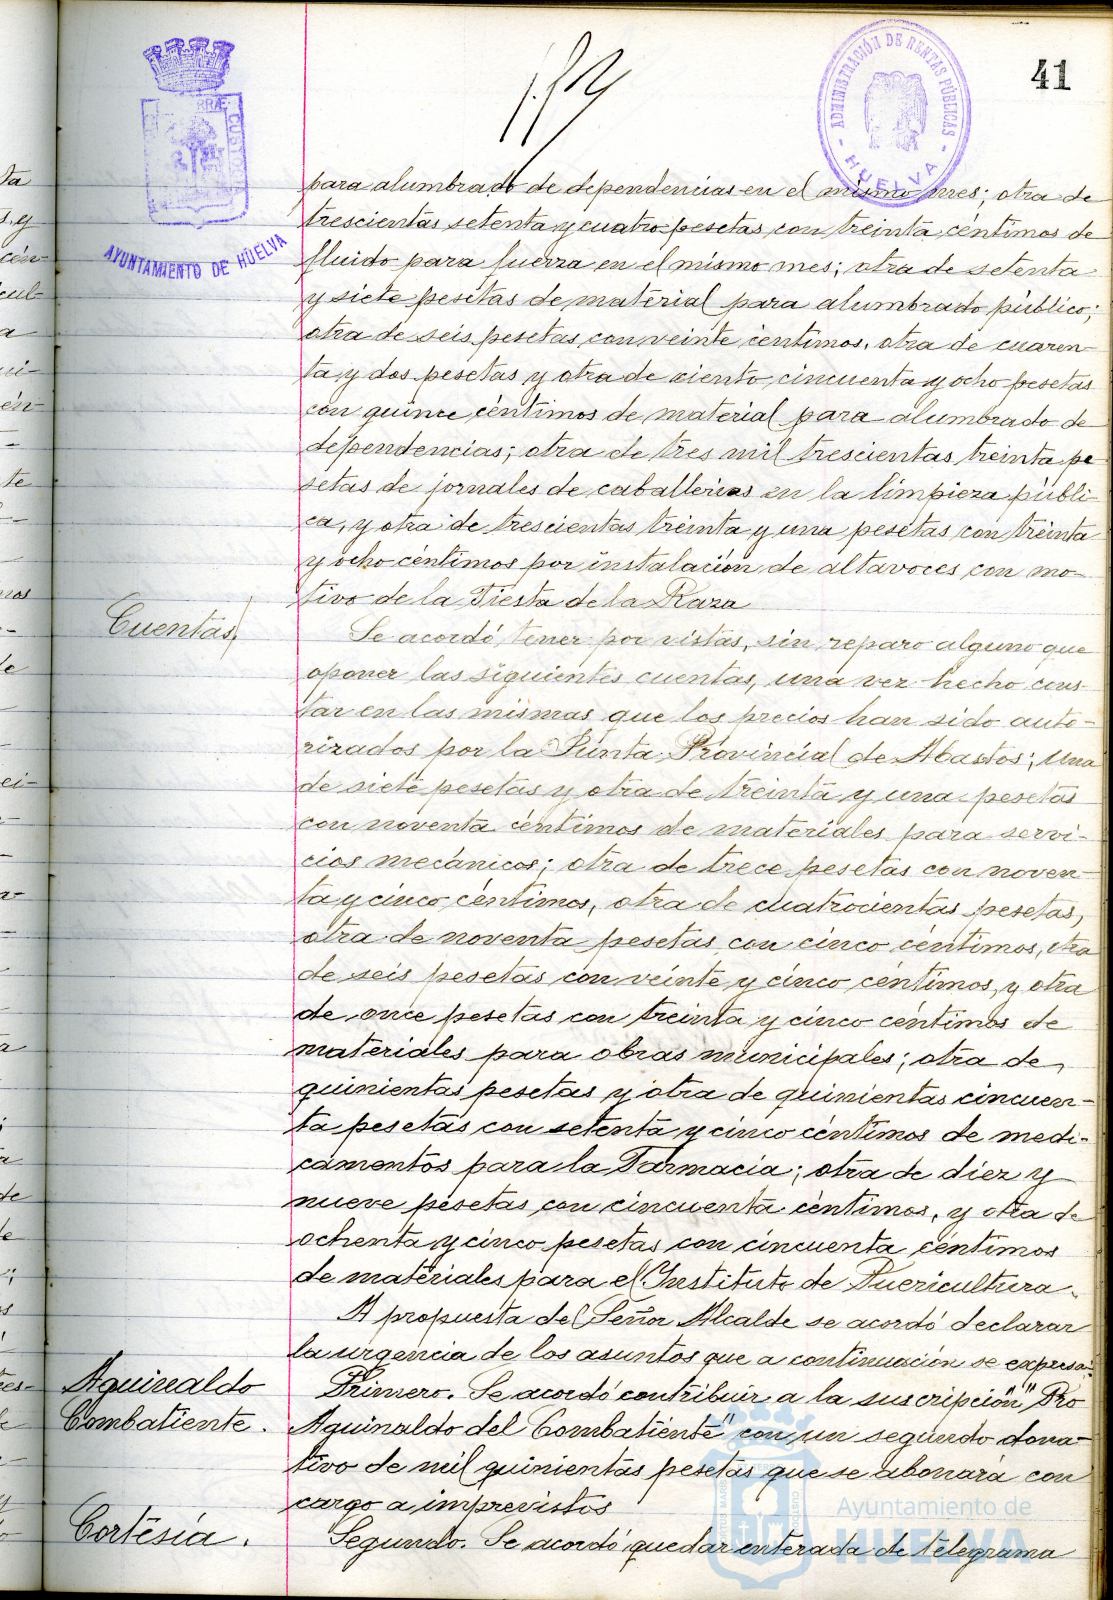 41
ADMINISTRACIÓN DE RENTAS PÚBLICAS
HUELVA
AYUNTAMIENTO DE HUELVA
para alumbrado de dependencias en el mismo mes; otra de
trescientas setenta y cuatro pesetas con treinta céntimos de
fluido para fuerza en el mismo mes; otra de setenta
y siete pesetas de material para alumbrado público;
otra de seis pesetas con veinte céntimos, otra de cuaren-
ta y dos pesetas y otra de ciento cincuenta y ocho pesetas
con quince céntimos de material para alumbrado de
dependencias; otra de tres mil trescientas treinta pe
setas de jornales de caballerias en la limpieza públi-
ca, y otra de trescientas treinta y una pesetas con treinta
y ocho céntimos por instalación de altavoces con mo-
tivo de la Fiesta de la Raza
Cuentas
Se acordó tener por vistas, sin reparo alguno que
oponer las siguientes cuentas, una vez hecho cons
tar en las mismas que los precios han sido auto-
rizados por la Junta Provincial de Abastos; una
de siete pesetas y otra de treinta y una pesetas
con noventa céntimos de materiales para servi-
cios mecánicos; otra de trece pesetas con noven-
ta y cinco céntimos, otra de cuatrocientas pesetas,
otra de noventa pesetas con cinco céntimos, otra
de seis pesetas con veinte y cinco céntimos, y otra
de once pesetas con treinta y cinco céntimos de
materiales para obras municipales; otra de
quinientas pesetas y otra de quinientas cincuen-
ta pesetas con setenta y cinco céntimos de medi-
camentos para la Farmacia; otra de diez y
nueve pesetas con cincuenta céntimos, y otra de
ochenta y cinco pesetas con cincuenta céntimos
de materiales para el Instituto de Puericultura.
A propuesta del Señor Alcalde se acordó declarar
la urgencia de los asuntos que a continuación se expresa:
Aguinaldo
Combatiente.
Primero. Se acordó contribuir a la suscripción "Pro
Aguinaldo del Combatiente" con un segundo dona-
tivo de mil quinientas pesetas que se abonará con
cargo a imprevistos
Cortesía.
Segundo. Se acordó quedar enterada de telegrama
Ayuntamiento de
HUELVA